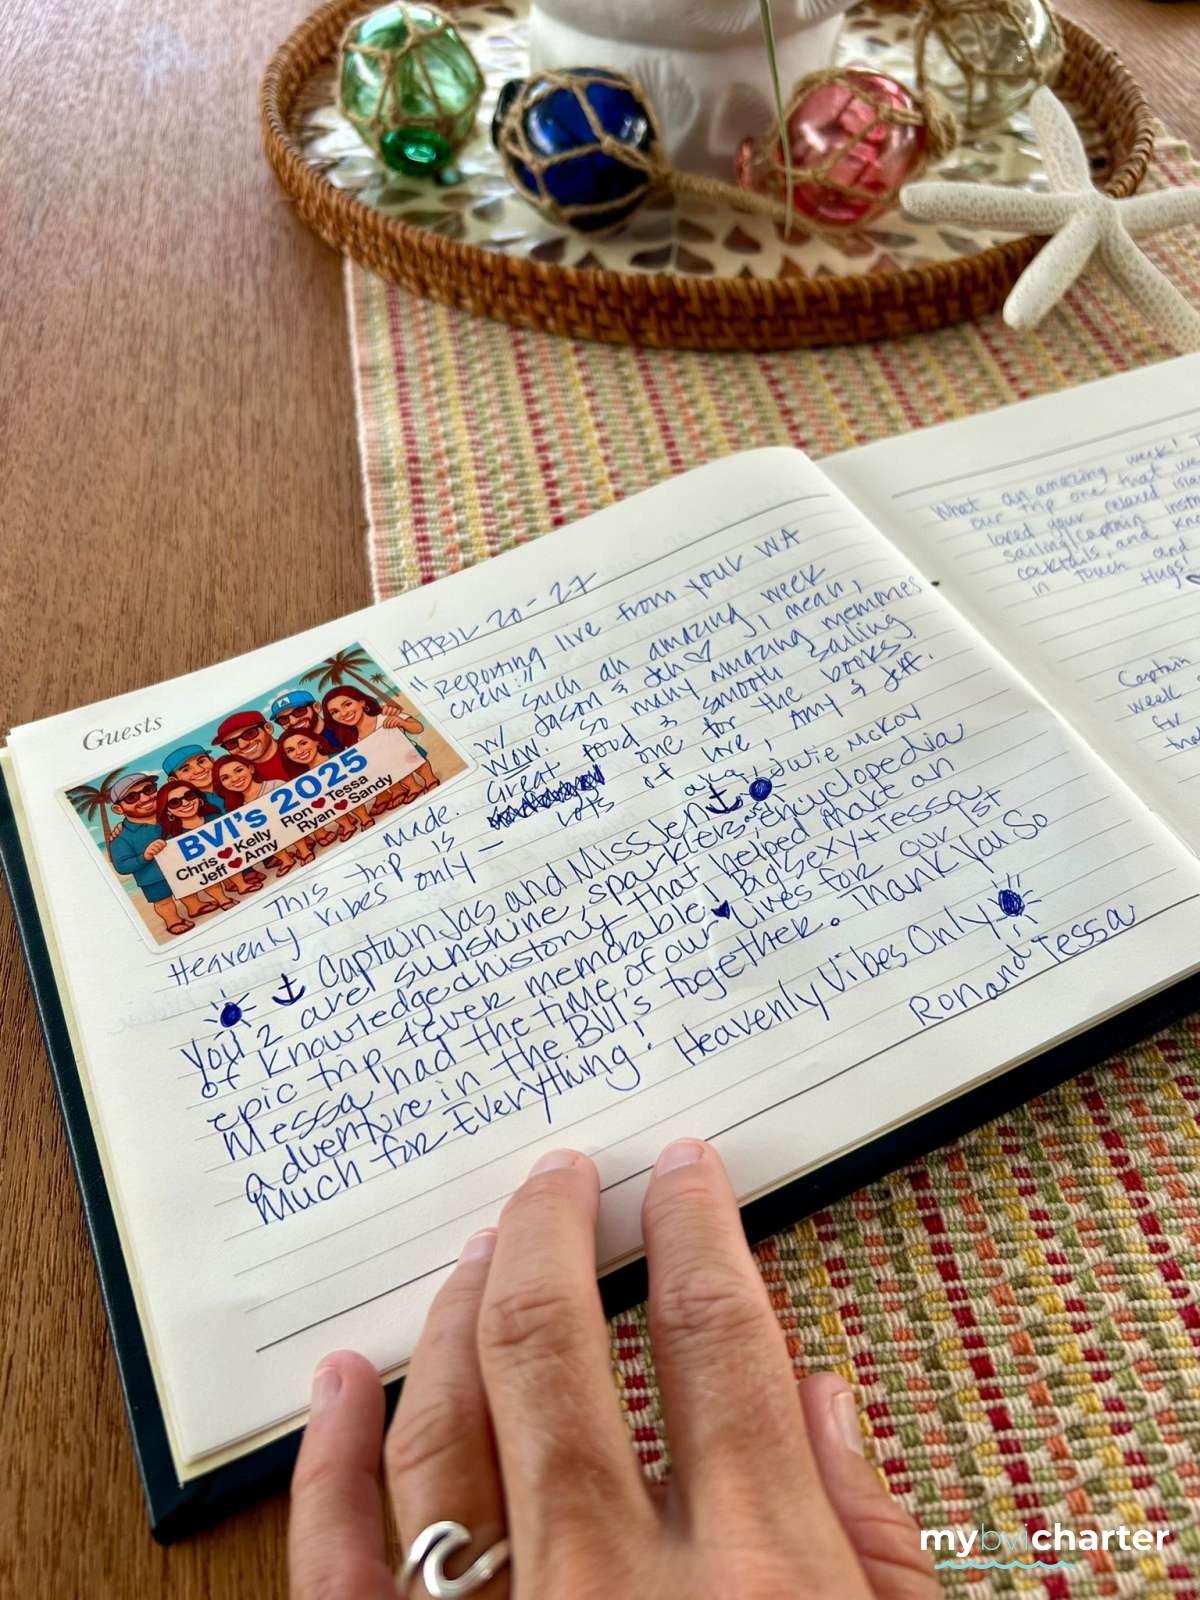 Guests
BVI's 2025
Chris ♥ Kelly Ron ♥ Tessa
Jeff ♥ Amy Ryan ♥ Sandy
APRIL 20-27
"Reporting live from your WA
crew!"
w/ such an amazing week
Jason & Jen ♡ I mean,
WOW. So many amazing memories
made. Great food & smooth sailing
This trip is one for the books.
Heavenly vibes only - Lots of love, Amy & Jeff.
aka, Louie McKoy
☀ ⚓ Captain Jas and Miss Jen ⚓ ☀
You 2 are sunshine, sparklers, and encyclopedia
of knowledge & history that helped make an
epic trip 4ever memorable! Big Sexy + Tessa
Messa had the time, of our ♥ lives for our 1st
adventure in the BVI's together. Thank you So
Much for Everything! Heavenly Vibes Only ☀
Ron and Tessa
What an amazing week!
our trip one that we
loved your relaxed
sailing/captain
cocktails, and
in touch and
Hugs!
Captain
week
for
mybvicharter